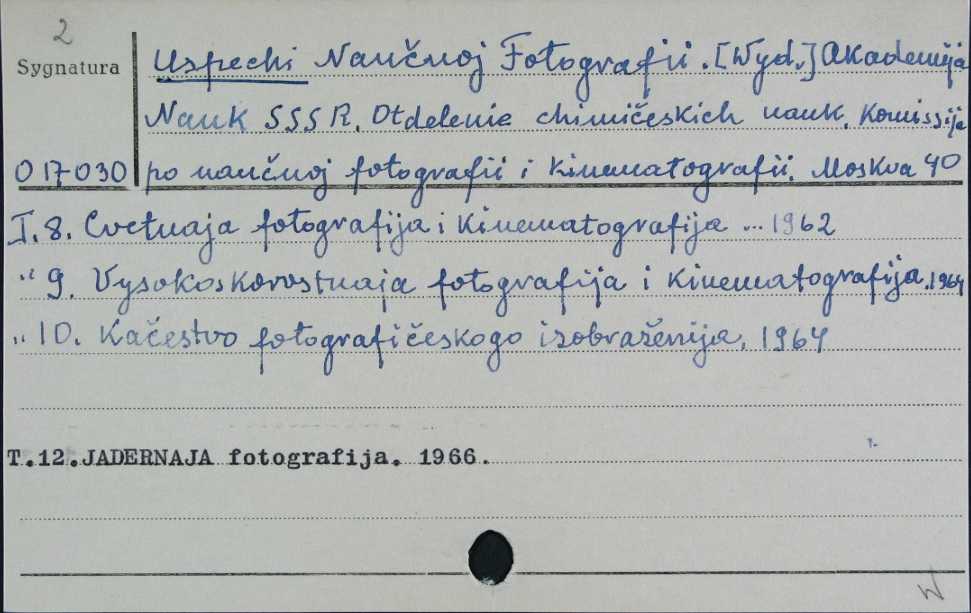 2
Sygnatura
Uspechi Naučnoj Fotografii. [Wyd.] Akademija
Nauk SSSR. Otdelenie chimičeskich nauk. Komissija
017030 po naučnoj fotografii i kinematografii. Moskva 40
T. 8. Cvetnaja fotografija i kinematografija ... 1962
" 9. Vysokoskorostnaja fotografija i kinematografija. 1964
" 10. Kačestvo fotografičeskogo izobraženija. 1964
T.12.JADERNAJA fotografija. 1966.
W